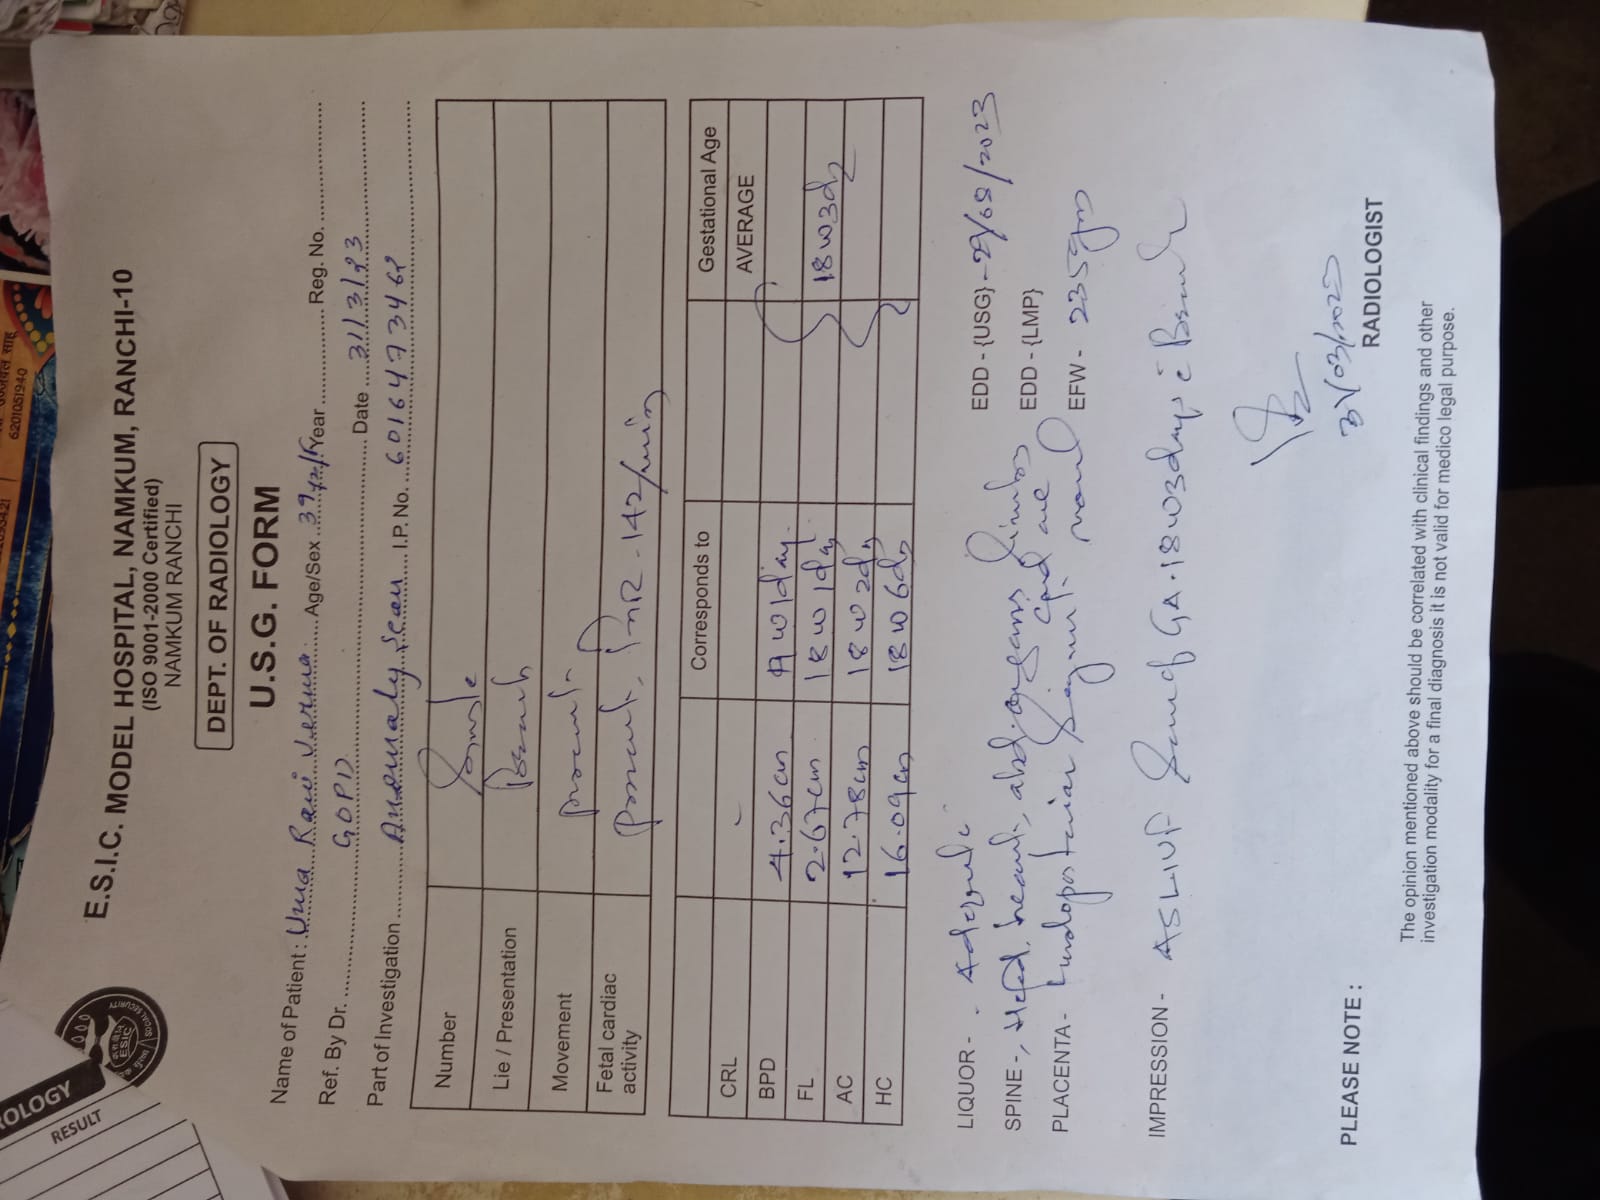 E.S.I.C. MODEL HOSPITAL, NAMKUM, RANCHI-10
(ISO 9001-2000 Certified)
NAMKUM RANCHI
DEPT. OF RADIOLOGY
U.S.G. FORM
Name of Patient : Uma Rani Verma Age/Sex 39 Year Reg. No.
Ref. By Dr. GOPD Date 31/3/23
Part of Investigation Anomaly Scan I.P. No. 6016473468
Number Single
Lie / Presentation Breech
Movement present
Fetal cardiac activity present, FHR - 142/min
Corresponds to Gestational Age
CRL - AVERAGE
BPD 4.36cm 19w1day
FL 2.67cm 18w1day 18w3d
AC 12.78cm 18w2d
HC 16.09cm 18w6d
LIQUOR - Adequate
EDD - {USG} - 29/08/2023
SPINE -, Head, heart, abd. organs limbs
EDD - {LMP}
and are normal
PLACENTA - Fundoposterior
EFW - 235gm
IMPRESSION - A SLIUF of GA. 18w3days c Breech
31/03/2023
RADIOLOGIST
PLEASE NOTE :
The opinion mentioned above should be correlated with clinical findings and other
investigation modality for a final diagnosis it is not valid for medico legal purpose.
ROLOGY
RESULT
ESIC
6201051940